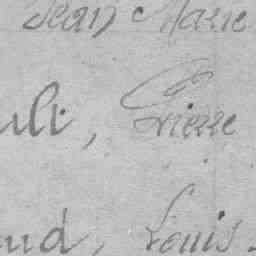 Jean Marie
ult, Pierre
ud, Louis